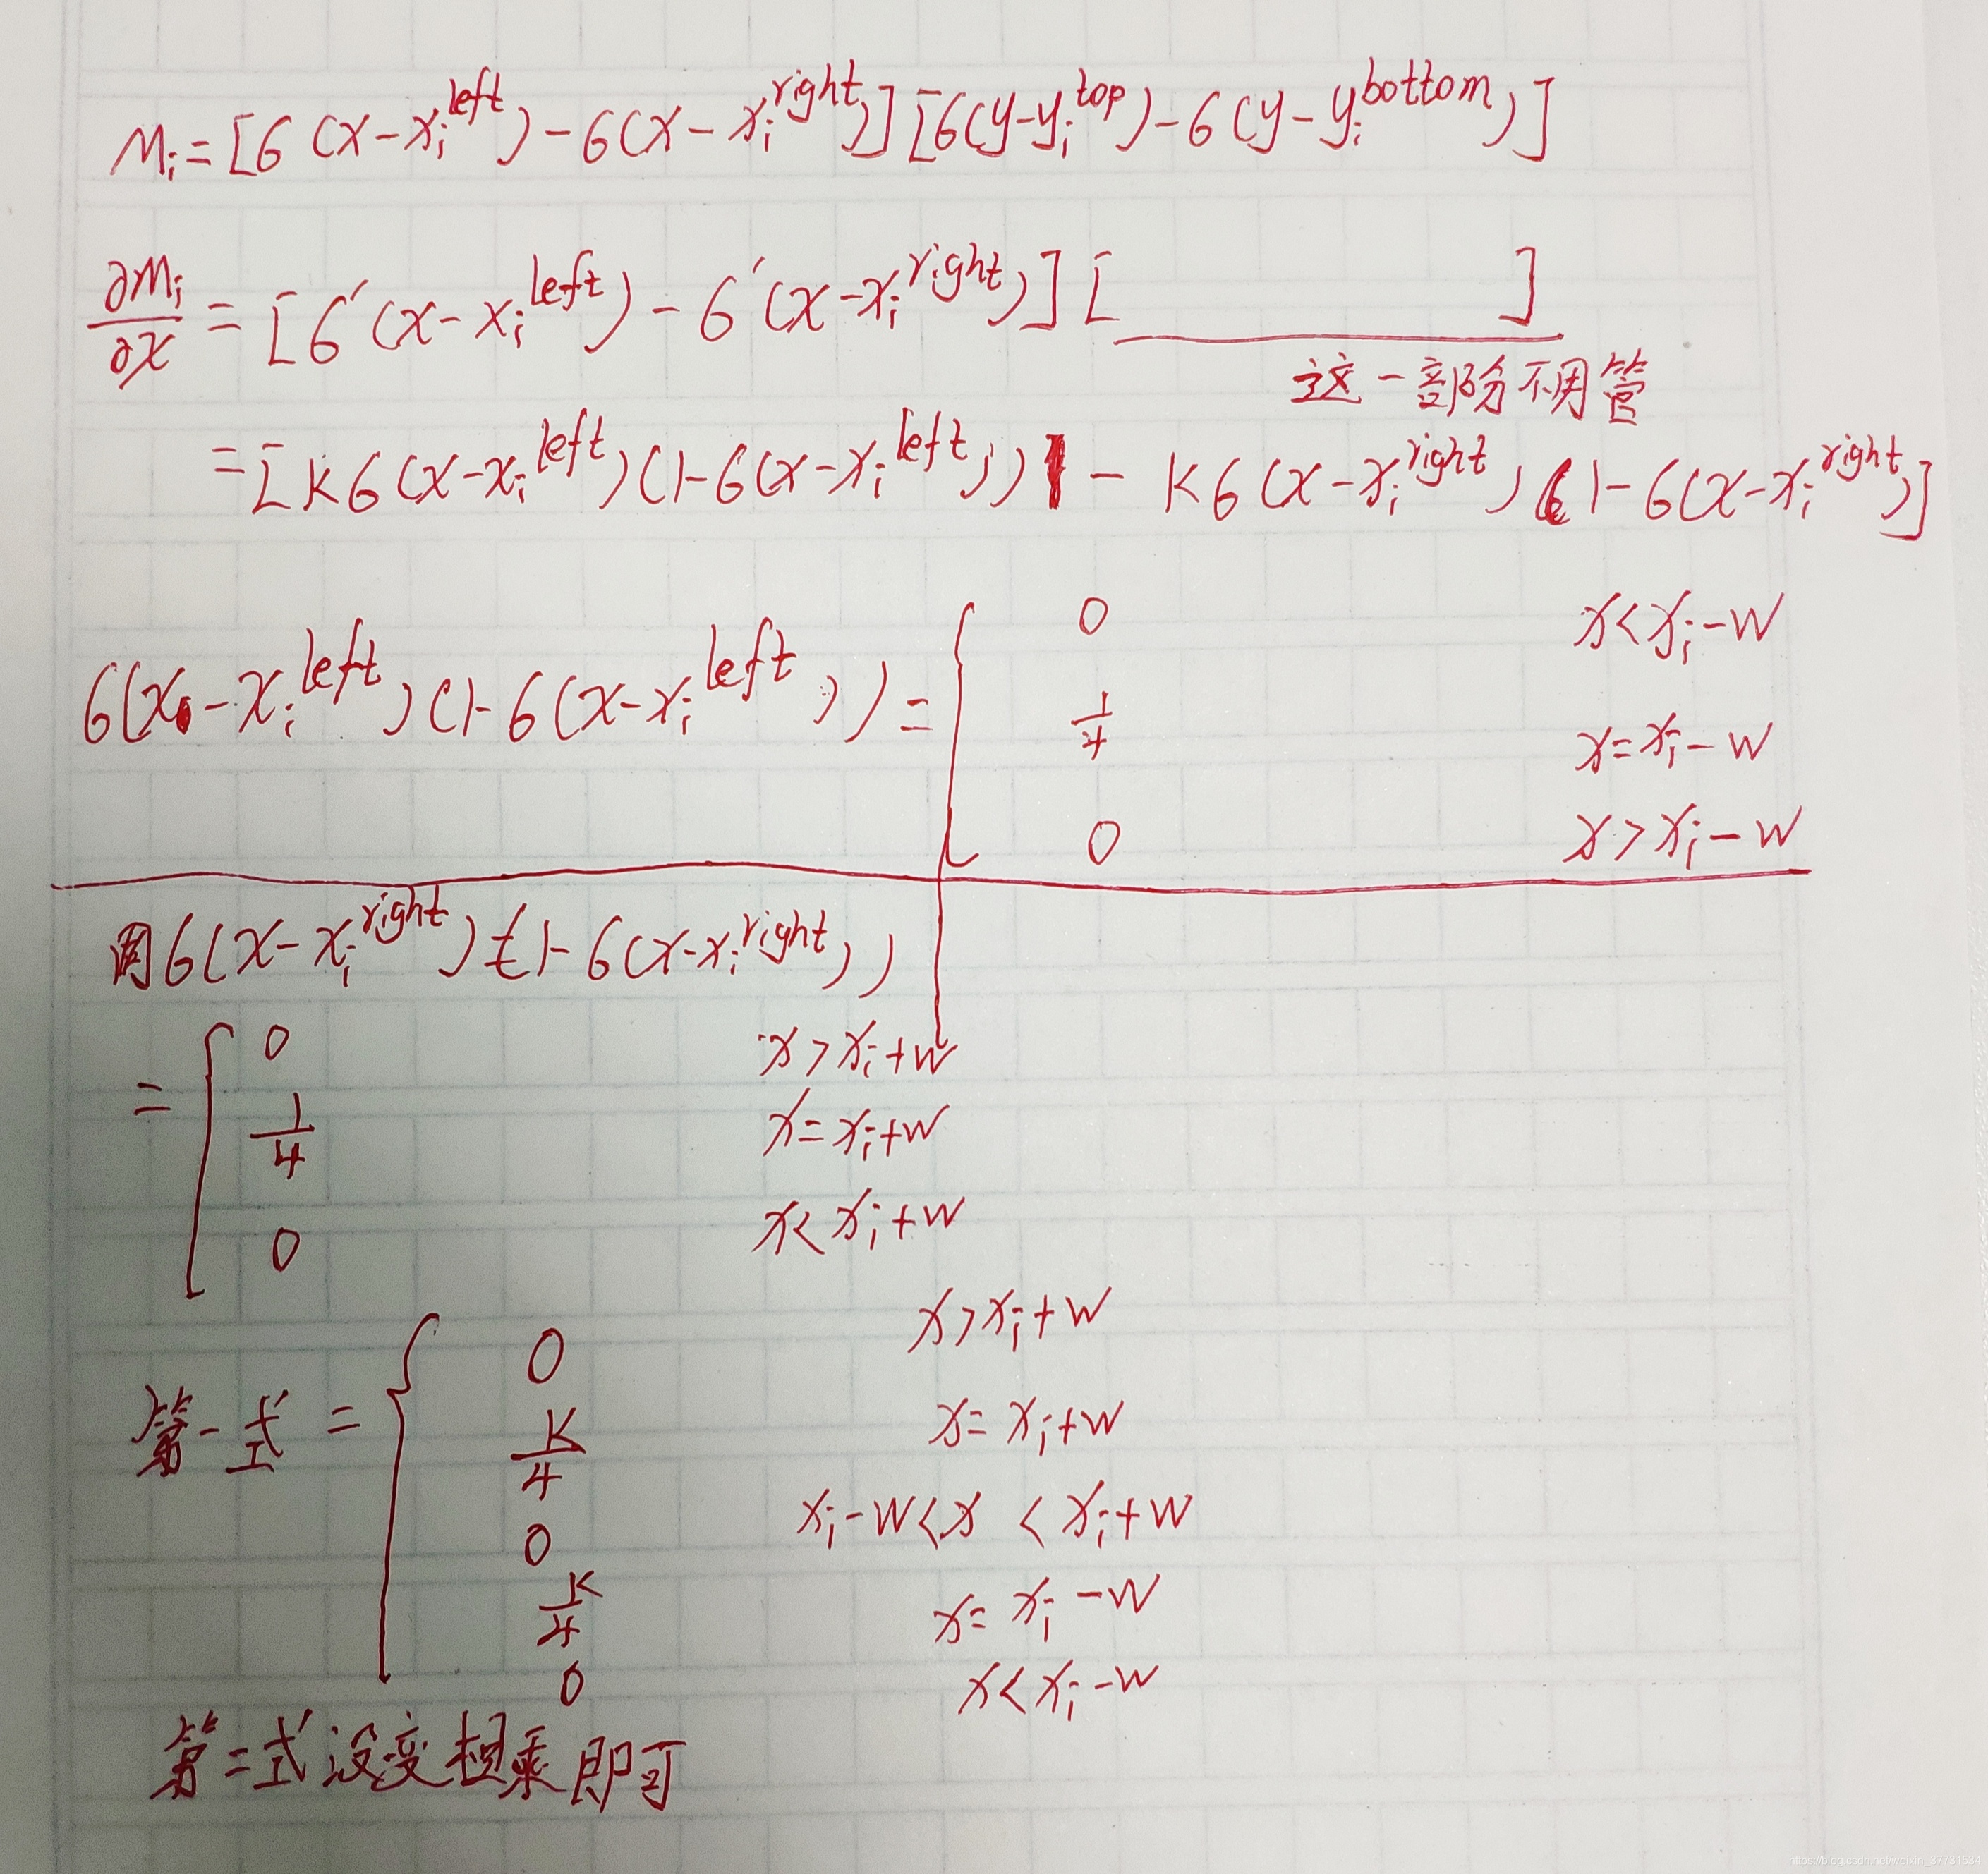 M_i = [6(x-x_i^{left})-6(x-x_i^{right})][6(y-y_i^{top})-6(y-y_i^{bottom})]
∂M_i/∂x = [6'(x-x_i^{left})-6'(x-x_i^{right})][ ]
这一部份不用管
=[K6(x-x_i^{left})(1-6(x-x_i^{left})) - K6(x-x_i^{right})(1-6(x-x_i^{right})]
6(x-x_i^{left})(1-6(x-x_i^{left})) = {
0 x<x_i-w
1/4 x=x_i-w
0 x>x_i-w
6(x-x_i^{right})(1-6(x-x_i^{right}))
= {
0 x>x_i+w
1/4 x=x_i+w
0 x<x_i+w
第一式 = {
0 x>x_i+w
K/4 x=x_i+w
0 x_i-w<x<x_i+w
K/4 x=x_i-w
0 x<x_i-w
第二式没变相乘即可